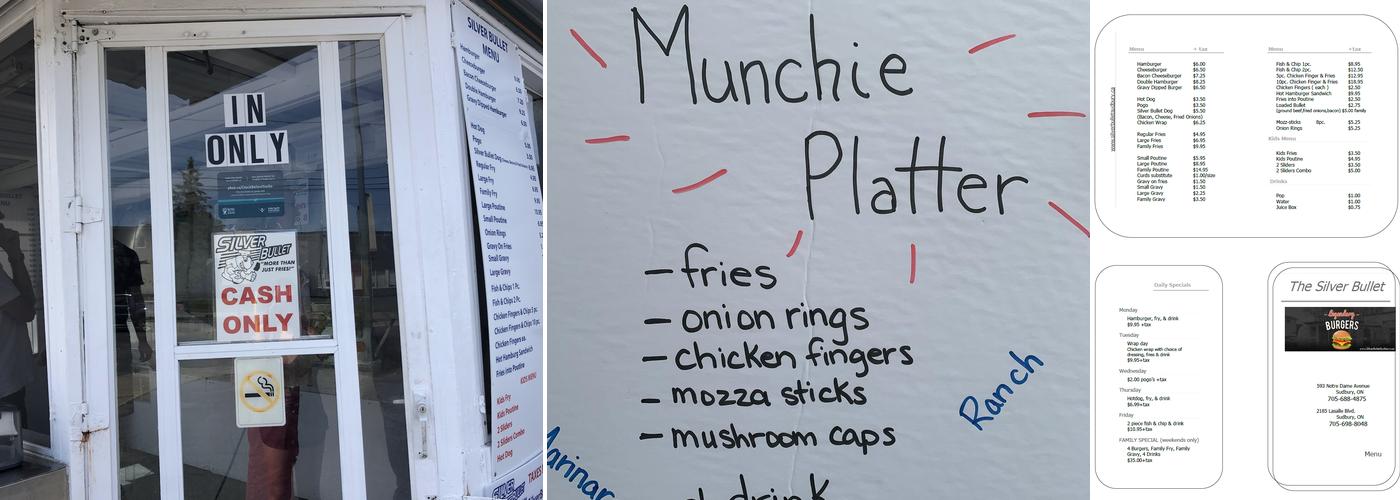 IN
ONLY
SILVER
BULLET
"MORE THAN
JUST FRIES!"
CASH
ONLY
SILVER BULLET
MENU
Hamburger
Cheeseburger
Bacon Cheeseburger
Double Hamburger
Gravy Dipped Hamburger
Hot Dog
Pogo
Silver Bullet Dog
Regular Fry
Large Fry
Family Fry
Small Poutine
Onion Rings
Gravy On Fries
Small Gravy
Large Gravy
Fish & Chips 1 Pc.
Fish & Chips 2 Pc.
Chicken Fingers & Chips 5 pc.
Chicken Fingers & Chips 10 pc.
Chicken Fingers ea.
Hot Hamburg Sandwich
Fries into Poutine
KIDS MENU
Kids Fry
Kids Poutine
2 Sliders
2 Sliders Combo
Hot Dog
Munchie
Platter
- fries
- onion rings
- chicken fingers
- mozza sticks
- mushroom caps
Ranch
drink
Menu + tax
Hamburger $6.00
Cheeseburger $6.50
Bacon Cheeseburger $7.25
Double Hamburger $8.25
Gravy Dipped Burger $6.50
Hot Dog $3.50
Pogo $3.50
Silver Bullet Dog $3.50
(Bacon, Cheese, Fried Onions)
Chicken Wrap $6.25
Regular Fries $4.95
Large Fries $6.95
Family Fries $9.95
Small Poutine $5.95
Large Poutine $8.95
Family Poutine $14.95
Curds substitute $1.00/size
Gravy on fries $1.50
Small Gravy $1.50
Large Gravy $2.25
Family Gravy $3.50
www.silverbulletsudbury.ca
Menu +tax
Fish & Chip 1pc. $8.95
Fish & Chip 2pc. $12.50
5pc. Chicken Finger & Fries $12.95
10pc. Chicken Finger & Fries $18.95
Chicken Fingers ( each ) $2.50
Hot Hamburger Sandwich $9.95
Fries into Poutine $2.50
Loaded Butter $2.75
(ground beef,fried onions,bacon) $5.00 family
Mozz-sticks 8pc. $5.25
Onion Rings $5.25
Kids Menu
Kids Fries $3.50
Kids Poutine $4.95
2 Sliders $3.50
2 Sliders Combo $5.00
Drinks
Pop $1.00
Water $1.00
Juice Box $0.75
Daily Specials
Monday
Hamburger, fry, & drink
$9.95 +tax
Tuesday
Wrap day
Chicken wrap with choice of
dressing, fries & drink
$9.95+tax
Wednesday
$2.00 pogo's +tax
Thursday
Hotdog, fry, & drink
$6.99+tax
Friday
2 piece fish & chip & drink
$10.95+tax
FAMILY SPECIAL (weekends only)
4 Burgers, Family Fry, Family
Gravy, 4 Drinks
$35.00+tax
The Silver Bullet
Legendary
BURGERS
393 Notre Dame Avenue
Sudbury, ON
705-688-4875
2185 Lasalle Blvd.
Sudbury, ON
705-698-8048
Menu